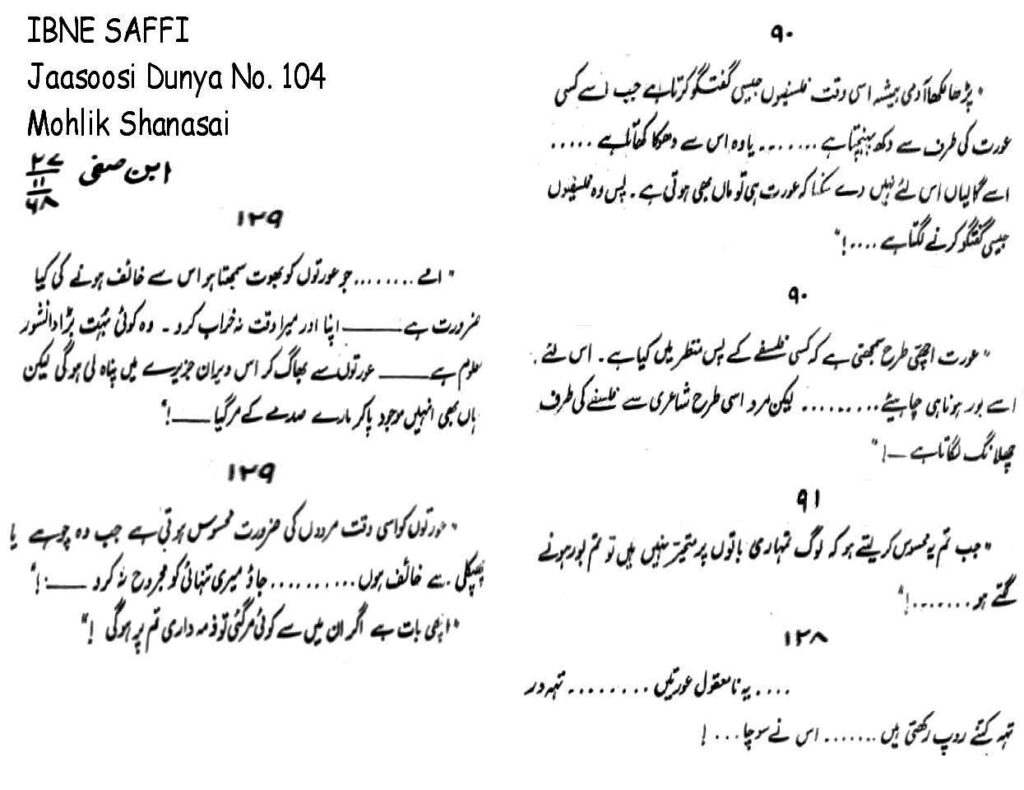 IBNE SAFFI
Jaasoosi Dunya No. 104
Mohlik Shanasai
ابن صفی ۲۷/۱۱/۶۸
۹۰
"پڑھا لکھا آدمی ہمیشہ اسی وقت فلسفیوں جیسی گفتگو کرتا ہے جب اسے کسی
عورت کی طرف سے دکھ پہنچتا ہے ........ یا وہ اس سے دھوکا کھاتا ہے .....
اسے گالیاں اس لئے نہیں دے سکتا کہ عورت ہی تو ماں بھی ہوتی ہے ۔ پس وہ فلسفیوں
جیسی گفتگو کرنے لگتا ہے ....!"
۹۰
"عورت اچھی طرح سمجھتی ہے کہ کسی فلسفے کے پس منظر میں کیا ہے ۔ اس لئے
اسے بور ہونا ہی چاہیئے ......... لیکن مرد اسی طرح شاعری سے فلسفے کی طرف
چھلانگ لگاتا ہے ــ!"
۹۱
"جب تم یہ محسوس کر لیتے ہو کہ لوگ تمہاری باتوں پر متحیر نہیں ہیں تو تم بور ہونے
لگتے ہو .......!"
۱۲۸
.... یہ نامعقول عورتیں ........ تہہ در
تہہ کتنے روپ رکھتی ہیں ....... اس نے سوچا ...!
۱۲۹
"امے ........ جو عورتوں کو بھوت سمجھتا ہو اس سے خائف ہونے کی کیا
ضرورت ہے ـــــ اپنا اور میرا وقت نہ خراب کرو ۔ وہ کوئی بہت بڑا دانشور
معلوم ہے ـــــ عورتوں سے بھاگ کر اس ویران جزیرے میں پناہ لی ہوگی لیکن
یہاں بھی انہیں موجود پا کر مارے صدمے کے مر گیا ـــــ!"
۱۲۹
"عورتوں کو اسی وقت مردوں کی ضرورت محسوس ہوتی ہے جب وہ چوہے یا
چھپکلی سے خائف ہوں .......... جاؤ میری تنہائی کو مجروح نہ کرو ـــــ!"
"اچھی بات ہے اگر ان میں سے کوئی مر گئی تو ذمہ داری تم پر ہوگی !"